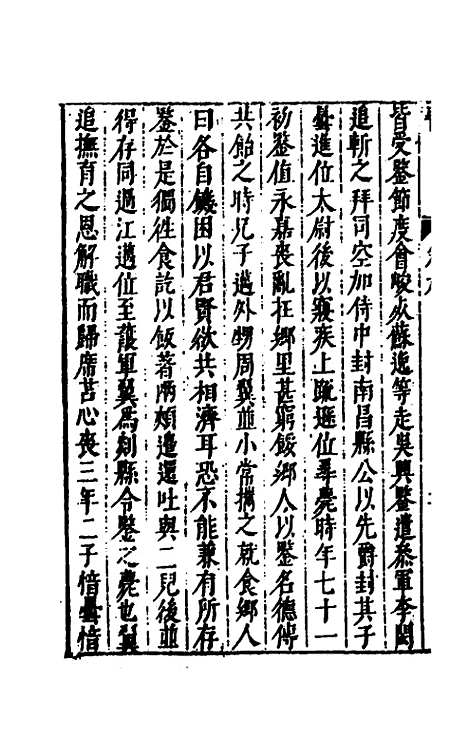 皆受鑒節度會峻𣦸蘇逸等走吳興鑒遣叅軍李閎
追斬之拜司空加侍中封南昌縣公以先爵封其子
曇進位太尉後以寢疾上䟽遜位尋薨時年七十一
初鑒值永嘉喪亂在鄉里甚窮餒鄉人以鑒名德傳
共飴之時兄子邁外甥周翼並小常携之就食鄉人
曰各自饑困以君賢欲共相濟耳恐不能兼有所存
鑒於是獨徃食訖以飯著兩頰邊還吐與二兒後並
得存同過江邁位至護軍翼為剡縣令鑒之薨也翼
追撫育之恩解職而歸席苫心喪三年二子愔曇愔